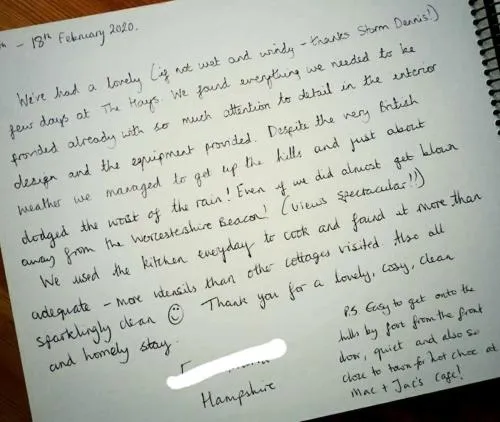 th - 18th February 2020.
We've had a lovely (if not wet and windy - thanks Storm Dennis!)
few days at The Hays. We found everything we needed to be
provided already with so much attention to detail in the interior
design and the equipment provided. Despite the very British
weather we managed to get up the hills and just about
dodged the worst of the rain! Even if we did almost get blown
away from the Worcestershire Beacon! (views spectacular!!)
We used the kitchen everyday to cook and found it more than
adequate - more utensils than other cottages visited. Also all
sparklingly clean ☺ Thank you for a lovely, cosy, clean
and homely stay.
Hampshire
P.S. Easy to get onto the
hills by foot from the front
door, quiet and also so
close to town for hot choc at
Mac + Jac's Cafe!